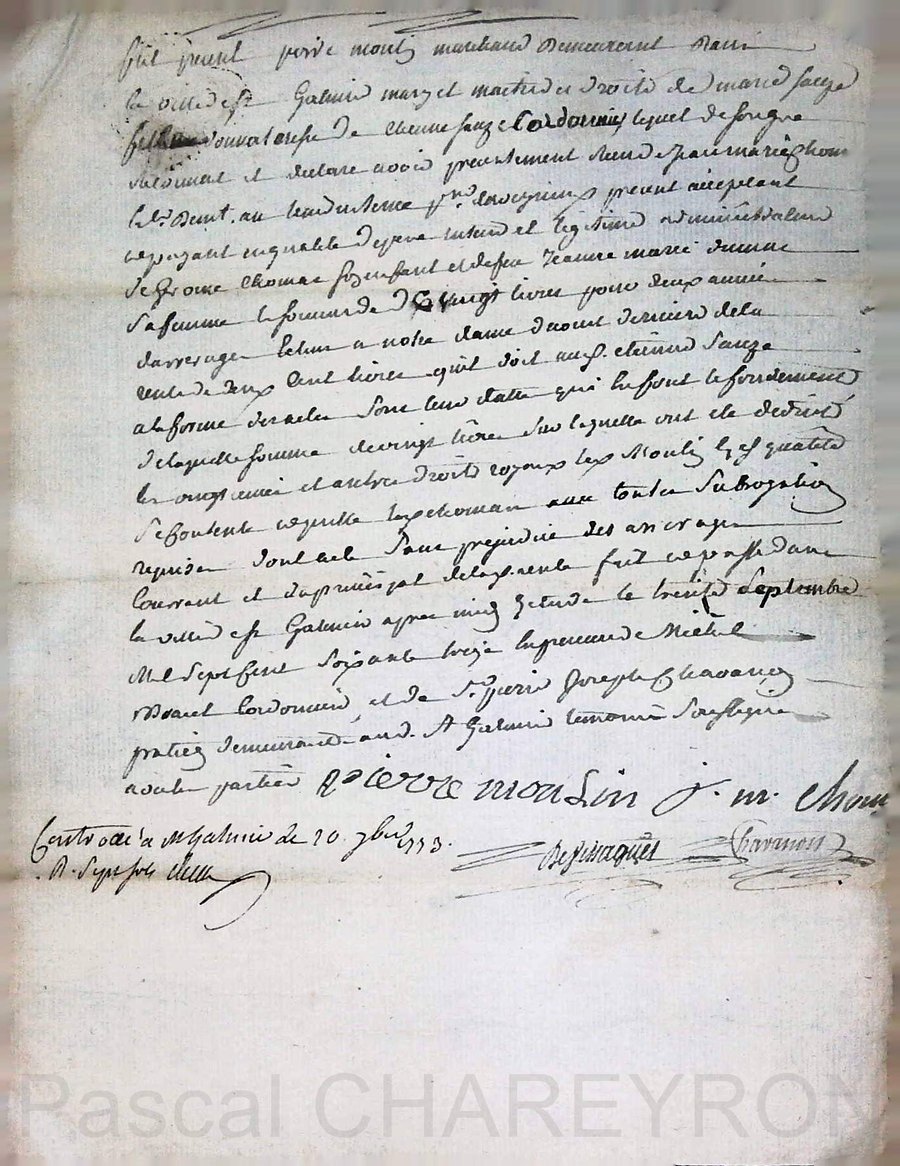 fut présent pierre moulin marchand demeurant dans
la ville de st Galmier mary et maitre des droits de marie sauze
donnataresse de Etienne sauze Cordonnier, lequel de son gré
reconnait et declare avoir présentement reçu de Jean marie Thom
present acceptant
et payant en qualité de pere tuteur et legitime administrateur
de Gerome thomas son enfant et de feu Jeanne marie
sa femme la somme de vingt livres pour deux années
darrerages echus a notre dame daoust dernier de la
rente de deux Cent livres quil doit aud. etienne sauze
a la forme des actes sous leur datte qui en font le fondement
de laquelle somme de vingt livres sur laquelle ont été deduits
les vingtiemes et autres droits royaux led. Moulin esd. qualités
se contente et quitte led. thomas avec toutes subrogations
requises dont acte sans prejudice des arrerages
Courrant et du principal de lad. rente fait et passé dans
la ville de st Galmier apres midy etude le trente septembre
Mil sept Cent soixante treize en presence de Michel
Cordonnier, et de Sr. pierre Joseph Chavanne
praticien demeurants aud. st Galmier temoins soussignés
avec les parties pierre moulin j. m. thom
Controllé a st Galmier le 10. 8bre 1773.
R. sept sols